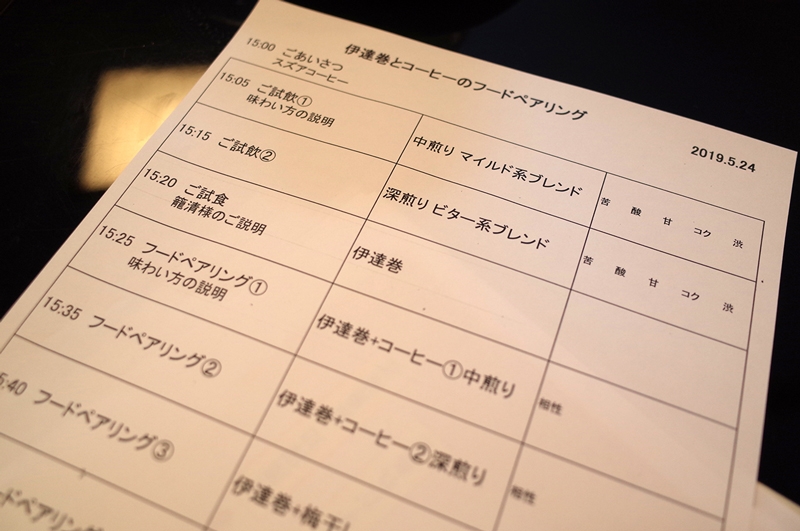 伊達巻とコーヒーのフードペアリング
2019.5.24
15:00 ごあいさつ
スズアコーヒー
15:05 ご試飲①
味わい方の説明
中煎り マイルド系ブレンド
苦 酸 甘 コク 渋
15:15 ご試飲②
深煎り ビター系ブレンド
苦 酸 甘 コク 渋
15:20 ご試食
籠清様のご説明
伊達巻
15:25 フードペアリング①
味わい方の説明
伊達巻+コーヒー①中煎り
相性
15:35 フードペアリング②
伊達巻+コーヒー②深煎り
相性
5:40 フードペアリング③
伊達巻+梅干し
ードペアリング